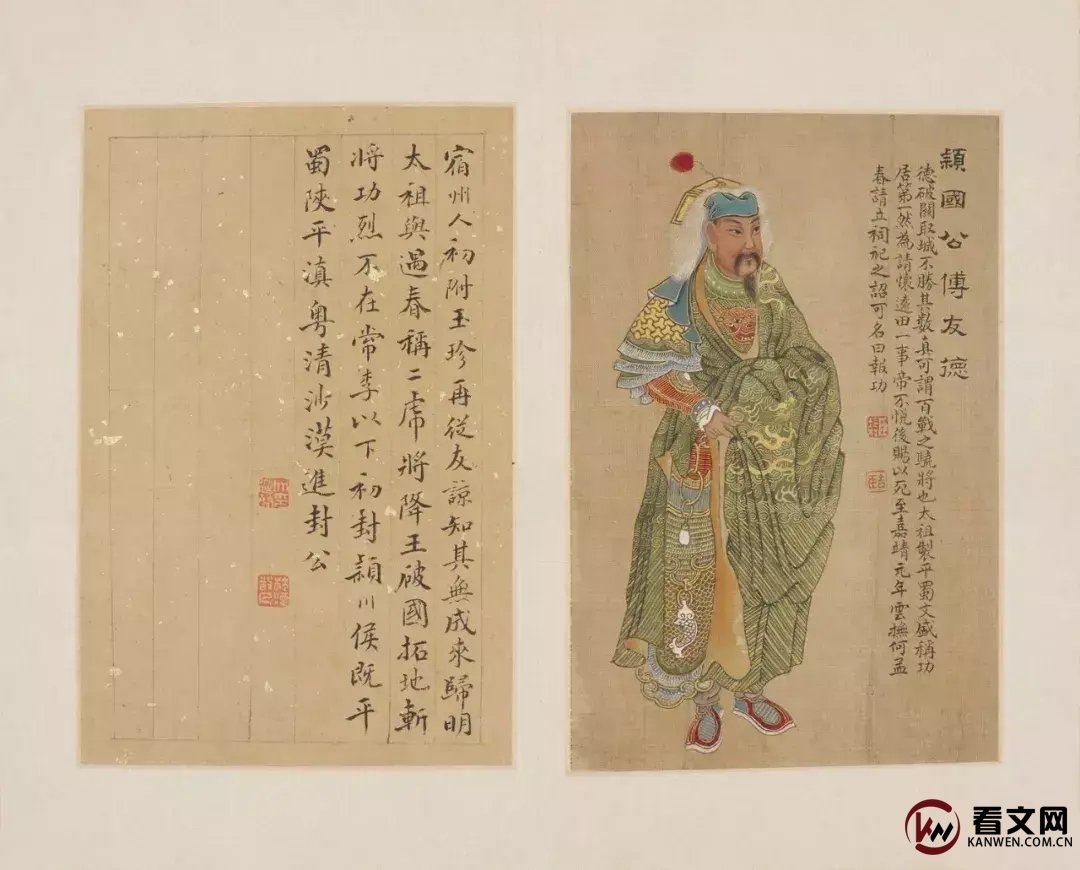 穎國公傅友德
德破關取城不勝其數真可謂百戰之驍將也太祖製平蜀文盛稱功
居第一然為請懷遠田一事帝不悅後賜以死至嘉靖元年雲撫何孟
春請立祠祀之詔可名曰報功
宿州人初附玉珍再從友諒知其無成來歸明
太祖與遇春稱二虎將降王破國拓地斬
將功烈不在常李以下初封潁川侯既平
蜀陝平滇粵清沙漠進封公
看文网
KANWEN.COM.CN